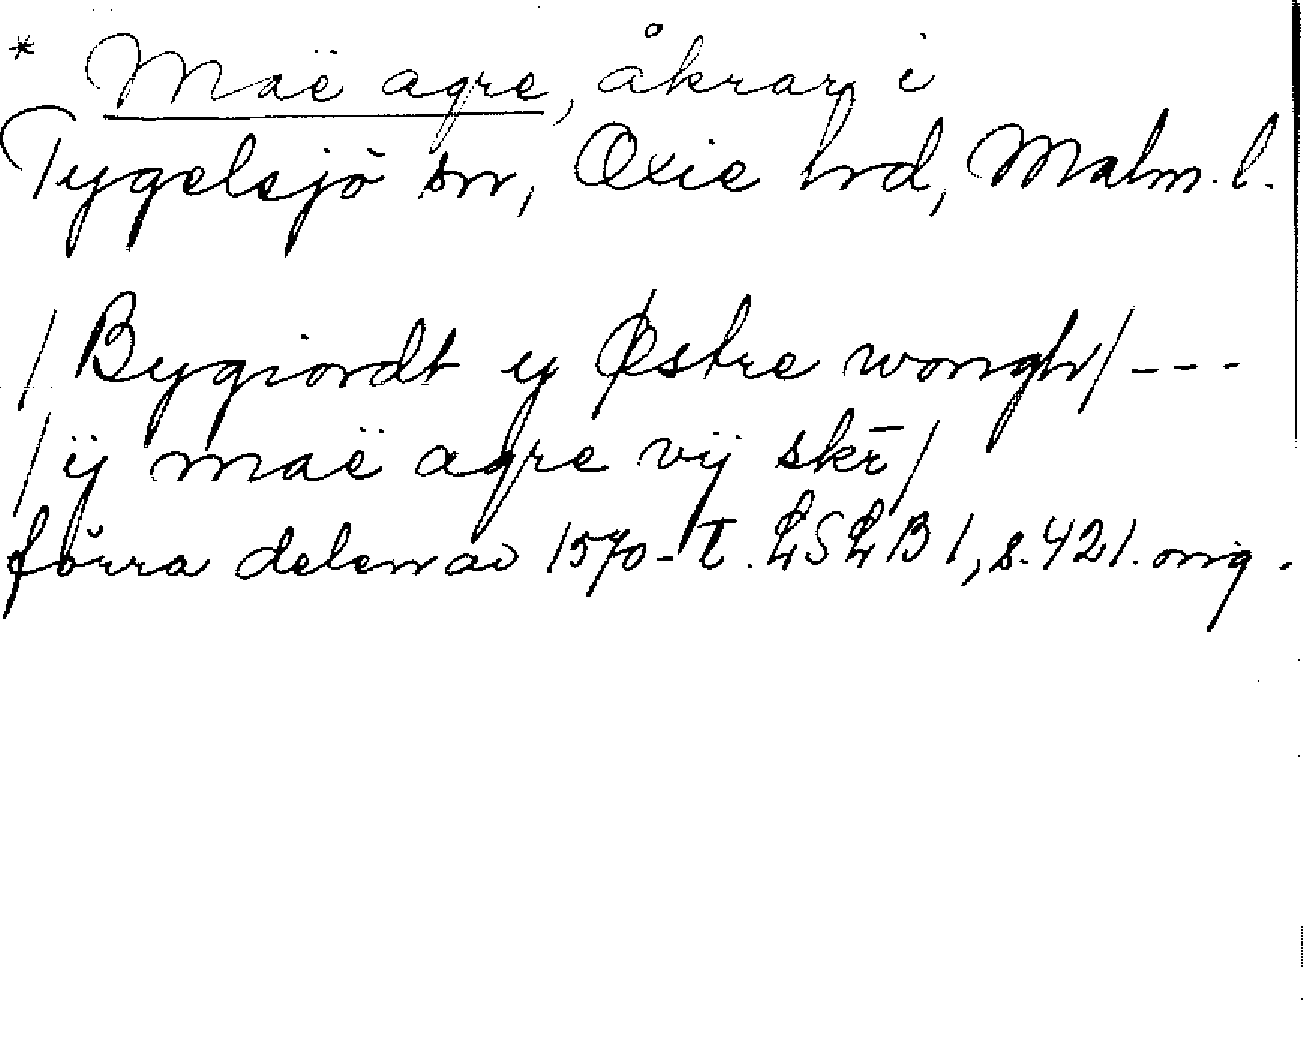 * Maë agre, åkrar i
Tygelsjö sn, Oxie hd, Malm. l.
/Bygiordt y Østre wongh/ ---
/ÿ maë agre vÿ skē/
förra delen av 1570-t. LSLB 1, s. 421. orig.